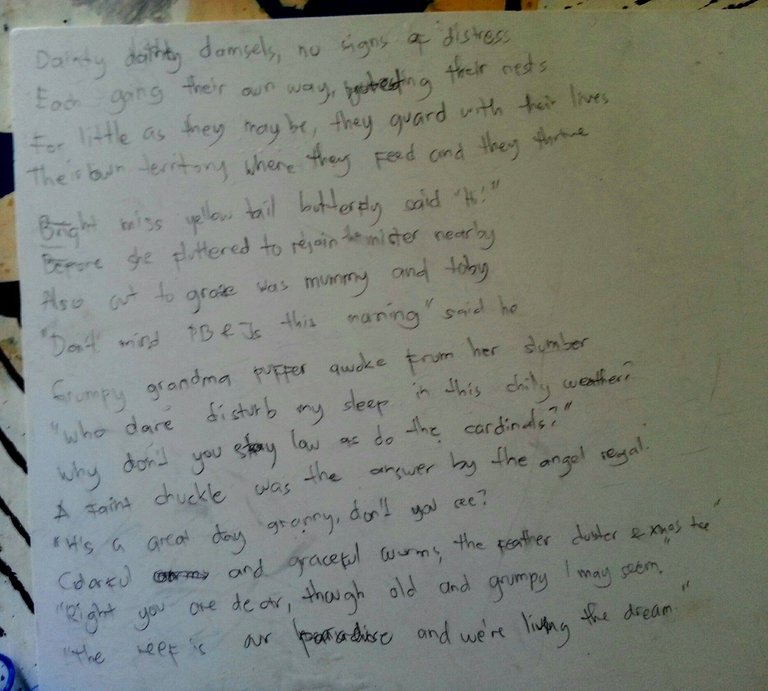 Dainty dainty damsels, no signs of distress
Each going their own way, protecting their nests
For little as they may be, they guard with their lives
Their own territory where they feed and they thrive
Bright miss yellow tail butterfly said "Hi!"
Before she fluttered to rejoin the mister nearby
Also out to graze was mummy and toby
"Don't mind PB & Js this morning" said he
Grumpy grandma puffer awoke from her slumber
"Who dare disturb my sleep in this chilly weather?
Why don't you stay low as do the cardinals?"
A faint chuckle was the answer by the angel regal.
"It's a great day granny, don't you see?
Colorful and graceful worms, the feather duster & xmas tee"
"Right you are dear, though old and grumpy I may seem."
"The reef is our paradise and we're living the dream."